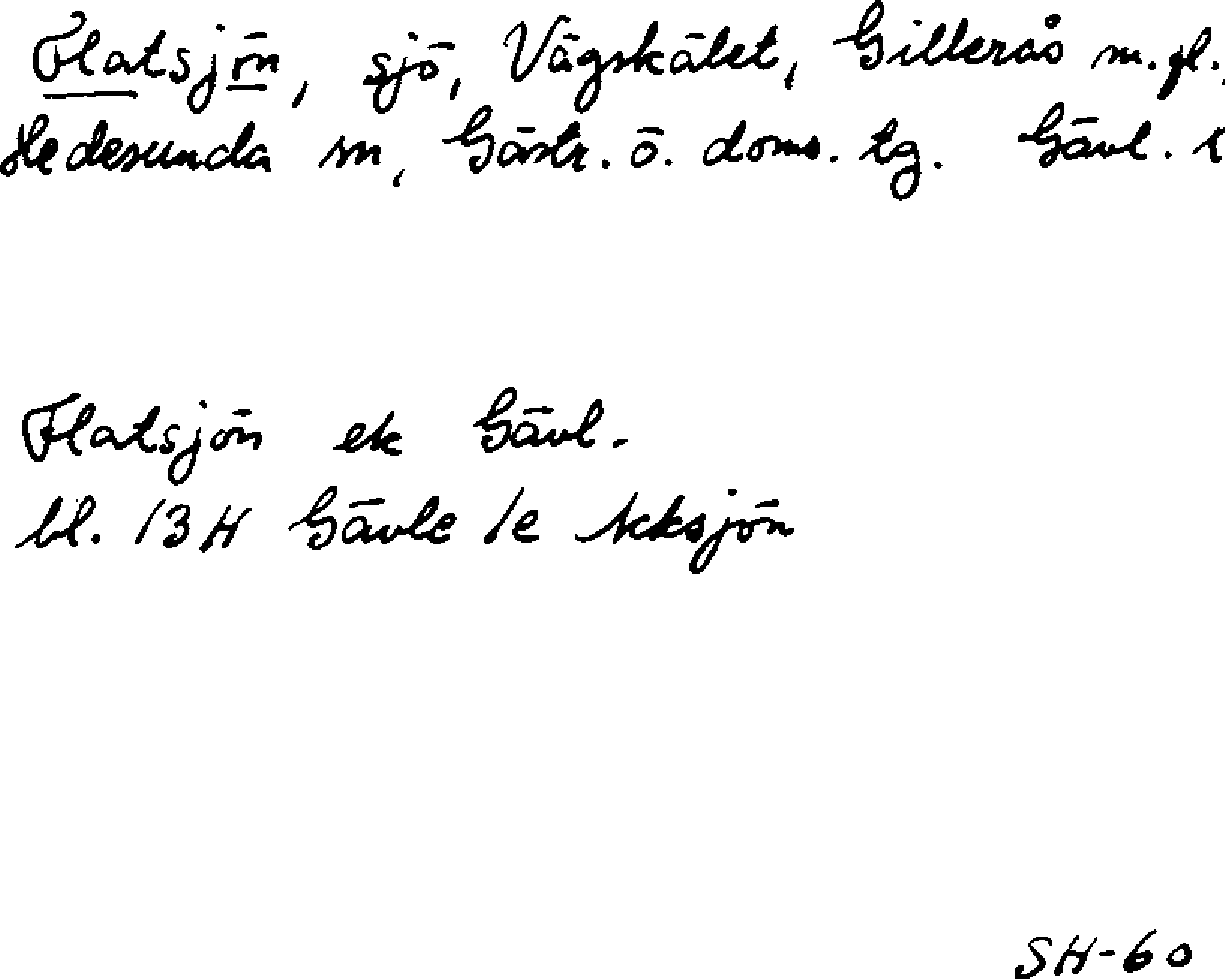 Flatsjön, sjö, Vägskälet, Gillerås m.fl.
Hedesunda sn, Gästr. ö. doms. tg. Gävl. l
Flatsjön ek Gävl.
bl. 13H Gävle 1e Acksjön
SH-60